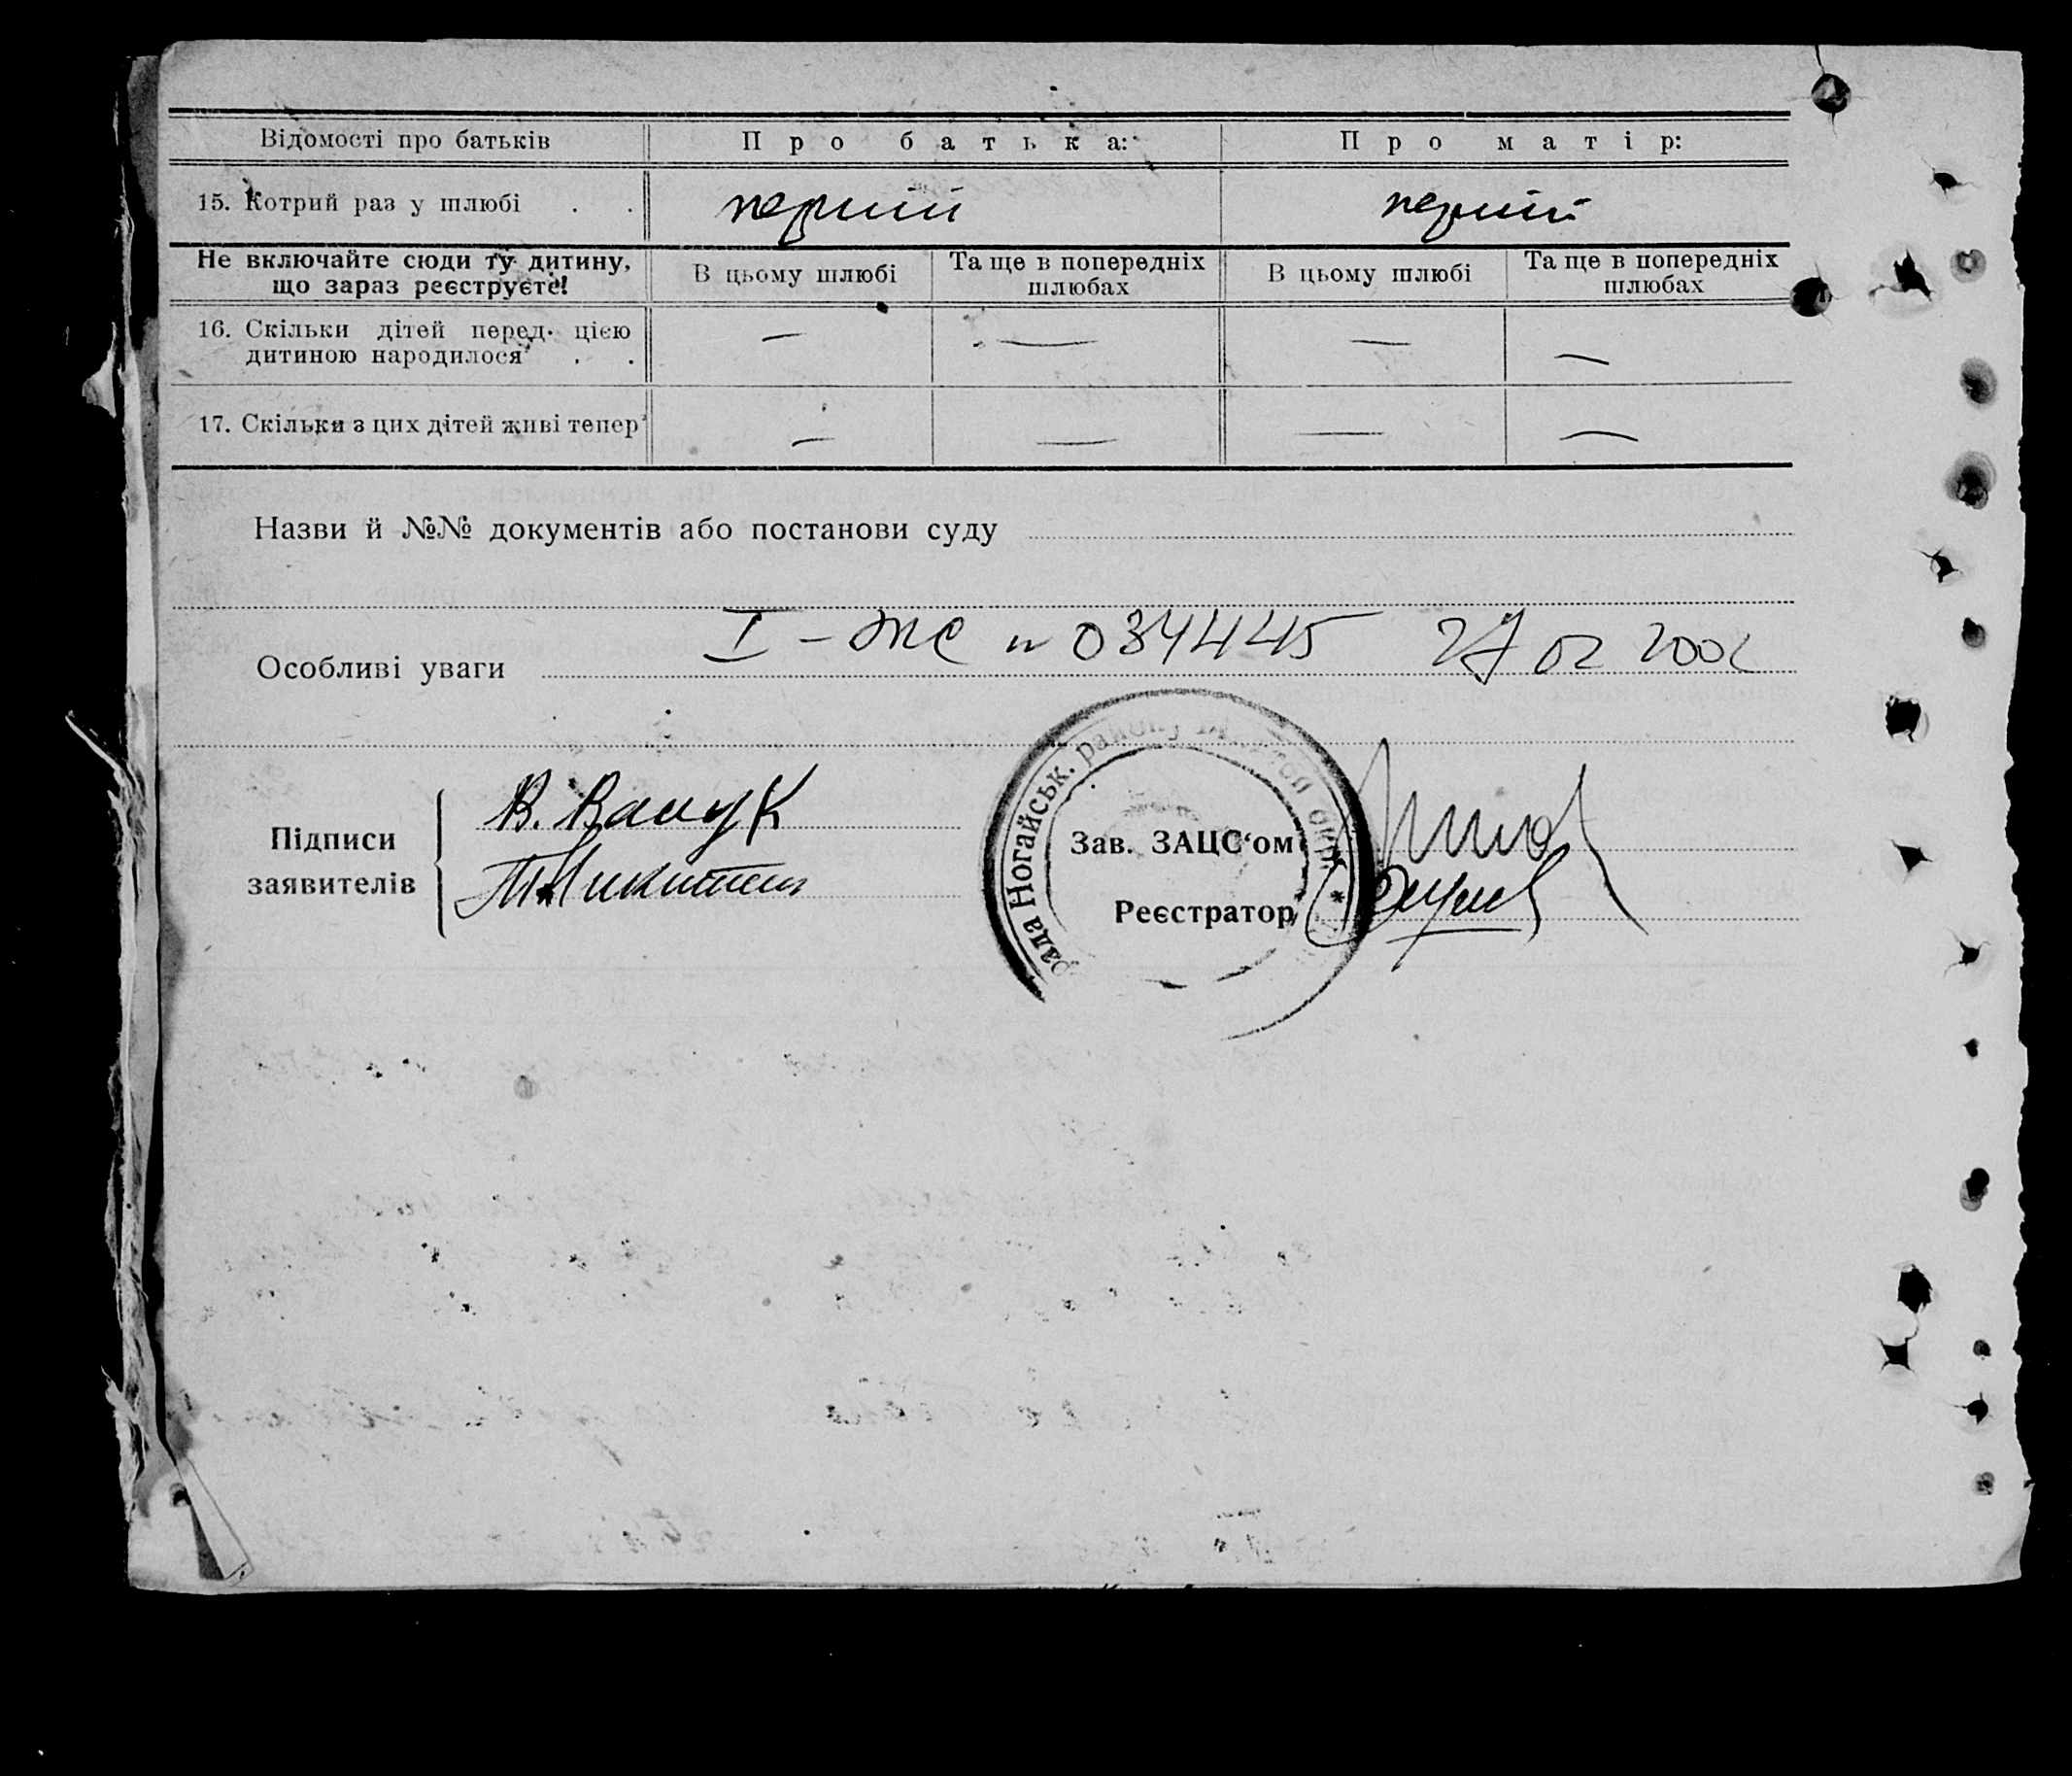 Відомості про батьків Про батька: Про матір:
15. Котрий раз у шлюбі . . перший перший
Не включайте сюди ту дитину, що зараз реєструєте!
В цьому шлюбі Та ще в попередніх шлюбах В цьому шлюбі Та ще в попередніх шлюбах
16. Скільки дітей перед цією — — — —
дитиною народилося . .
17. Скільки з цих дітей живі тепер — — — —
Назви й №№ документів або постанови суду
I – ЖС № 034445 27 02 2002
Особливі уваги
рада Ногайськ. району
Підписи заявителів
В.
Зав. ЗАЦС‘ом
Реєстратор